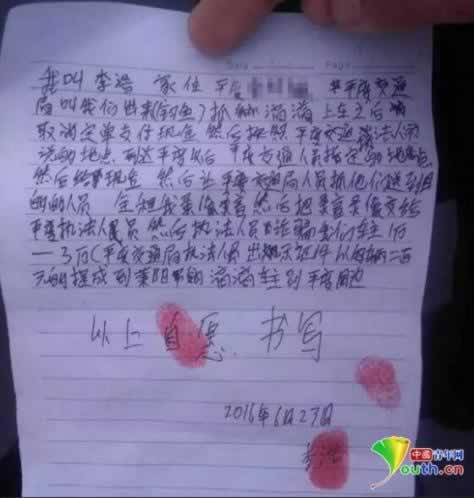 Date
Page
我叫李浩 家住平度 平度交通
局叫我们出来(钓鱼)抓 滴滴 上车之后
取消定单支付现金 然后按照平度交通 执法人员
说的地点 到达平度以后 平度交通人指定的地点
然后给现金 然后让平度交通局人员抓他们送到目
的的人员 全程我录像录音 然后把录音录像交给
平度执法人员 然后执法人员 车主1万
—3万(平度交通局执法人员出 示证件以每辆二百
元的提成 到莱阳 滴滴车主到平度周边
以上自愿 书写
2016年6月23日
李浩
中国青年网
youth.cn